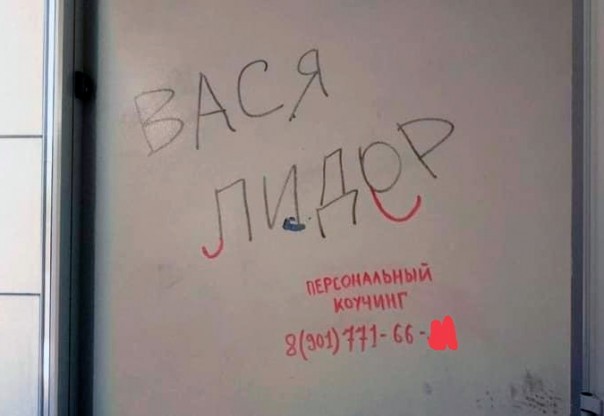 ВАСЯ
ЛИДЕР
ПЕРСОНАЛЬНЫЙ
КОУЧИНГ
8(901)771-66-